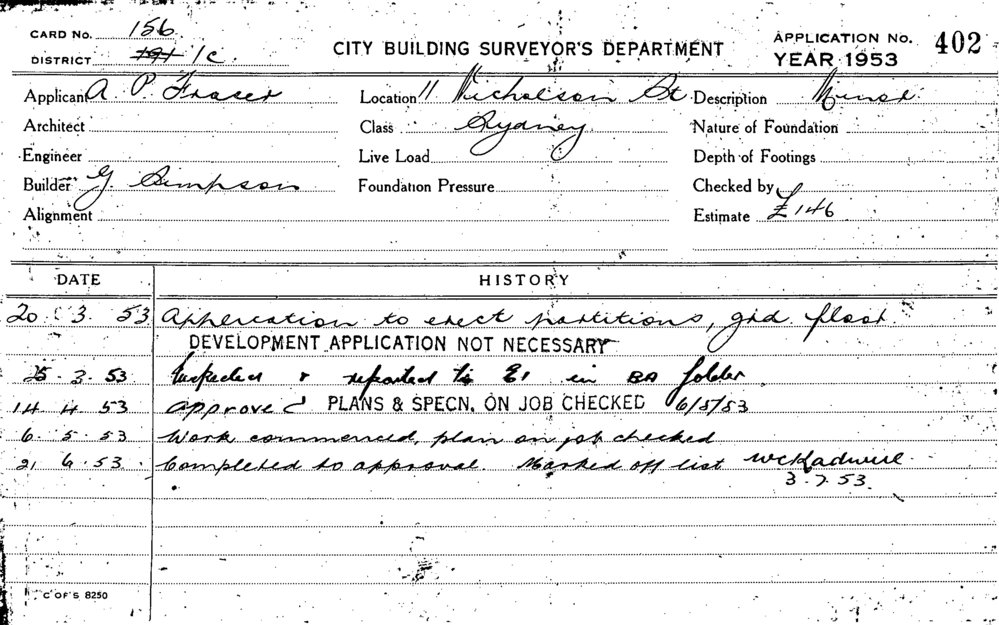 CARD No. 156
DISTRICT 191 1C.
CITY BUILDING SURVEYOR'S DEPARTMENT
APPLICATION No. 402
YEAR 1953
Applicant A. P. Fraser Location 11 Nicholson St Description Minor
Architect Class Sydney Nature of Foundation
Engineer Live Load Depth of Footings
Builder G. Simpson Foundation Pressure Checked by
Alignment Estimate £146
DATE HISTORY
20. 3. 53 Application to erect partitions, grd. floor.
DEVELOPMENT APPLICATION NOT NECESSARY
25. 3. 53 Inspected & reported to E1 in BA folder
14 4. 53 approved PLANS & SPECN. ON JOB CHECKED 6/5/53
6. 5. 53 Work commenced, plan on job checked
21 6. 53. Completed to approval. Marked off list
3. 7. 53.
C OF S 8250